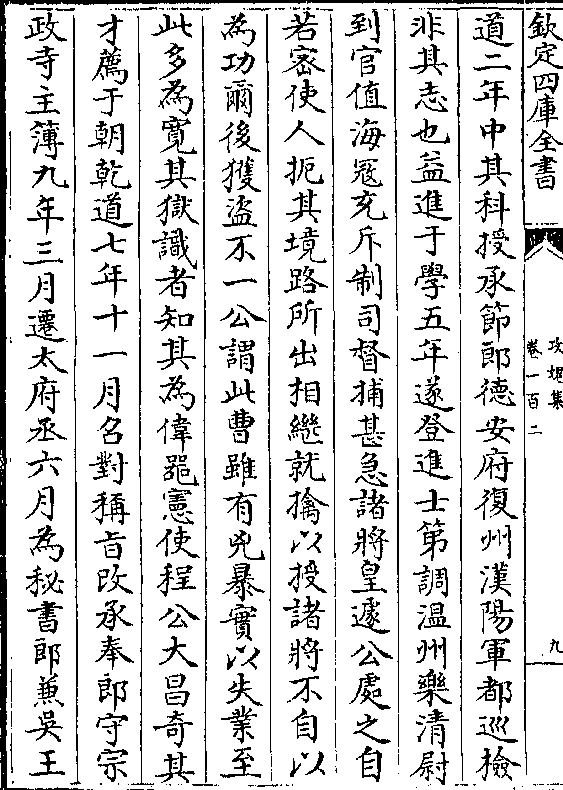 欽定四庫全書
攻媿集
卷一百二
九
道二年中其科授承節郎德安府復州漢陽軍都巡檢
非其志也益進于學五年遂登進士第調温州樂清尉
到官值海冦充斥制司督捕甚急諸將皇遽公處之自
若宻使人扼其境路所出相繼就擒以授諸將不自以
為功爾後獲盗不一公謂此曹雖有兇暴實以失業至
此多為寛其獄識者知其為偉噐憲使程公大昌竒其
才薦于朝乾道七年十一月名對稱㫖改承奉郎守宗
政寺主簿九年三月遷太府丞六月為秘書郎兼吳王